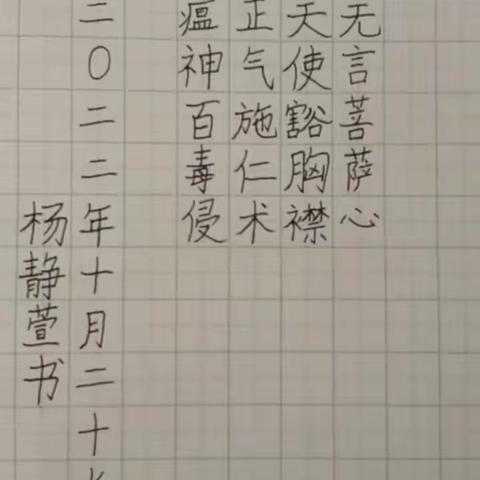 无言菩萨心
天使豁胸襟
正气施仁术
瘟神百毒侵
二〇二二年十月二十
杨静萱书